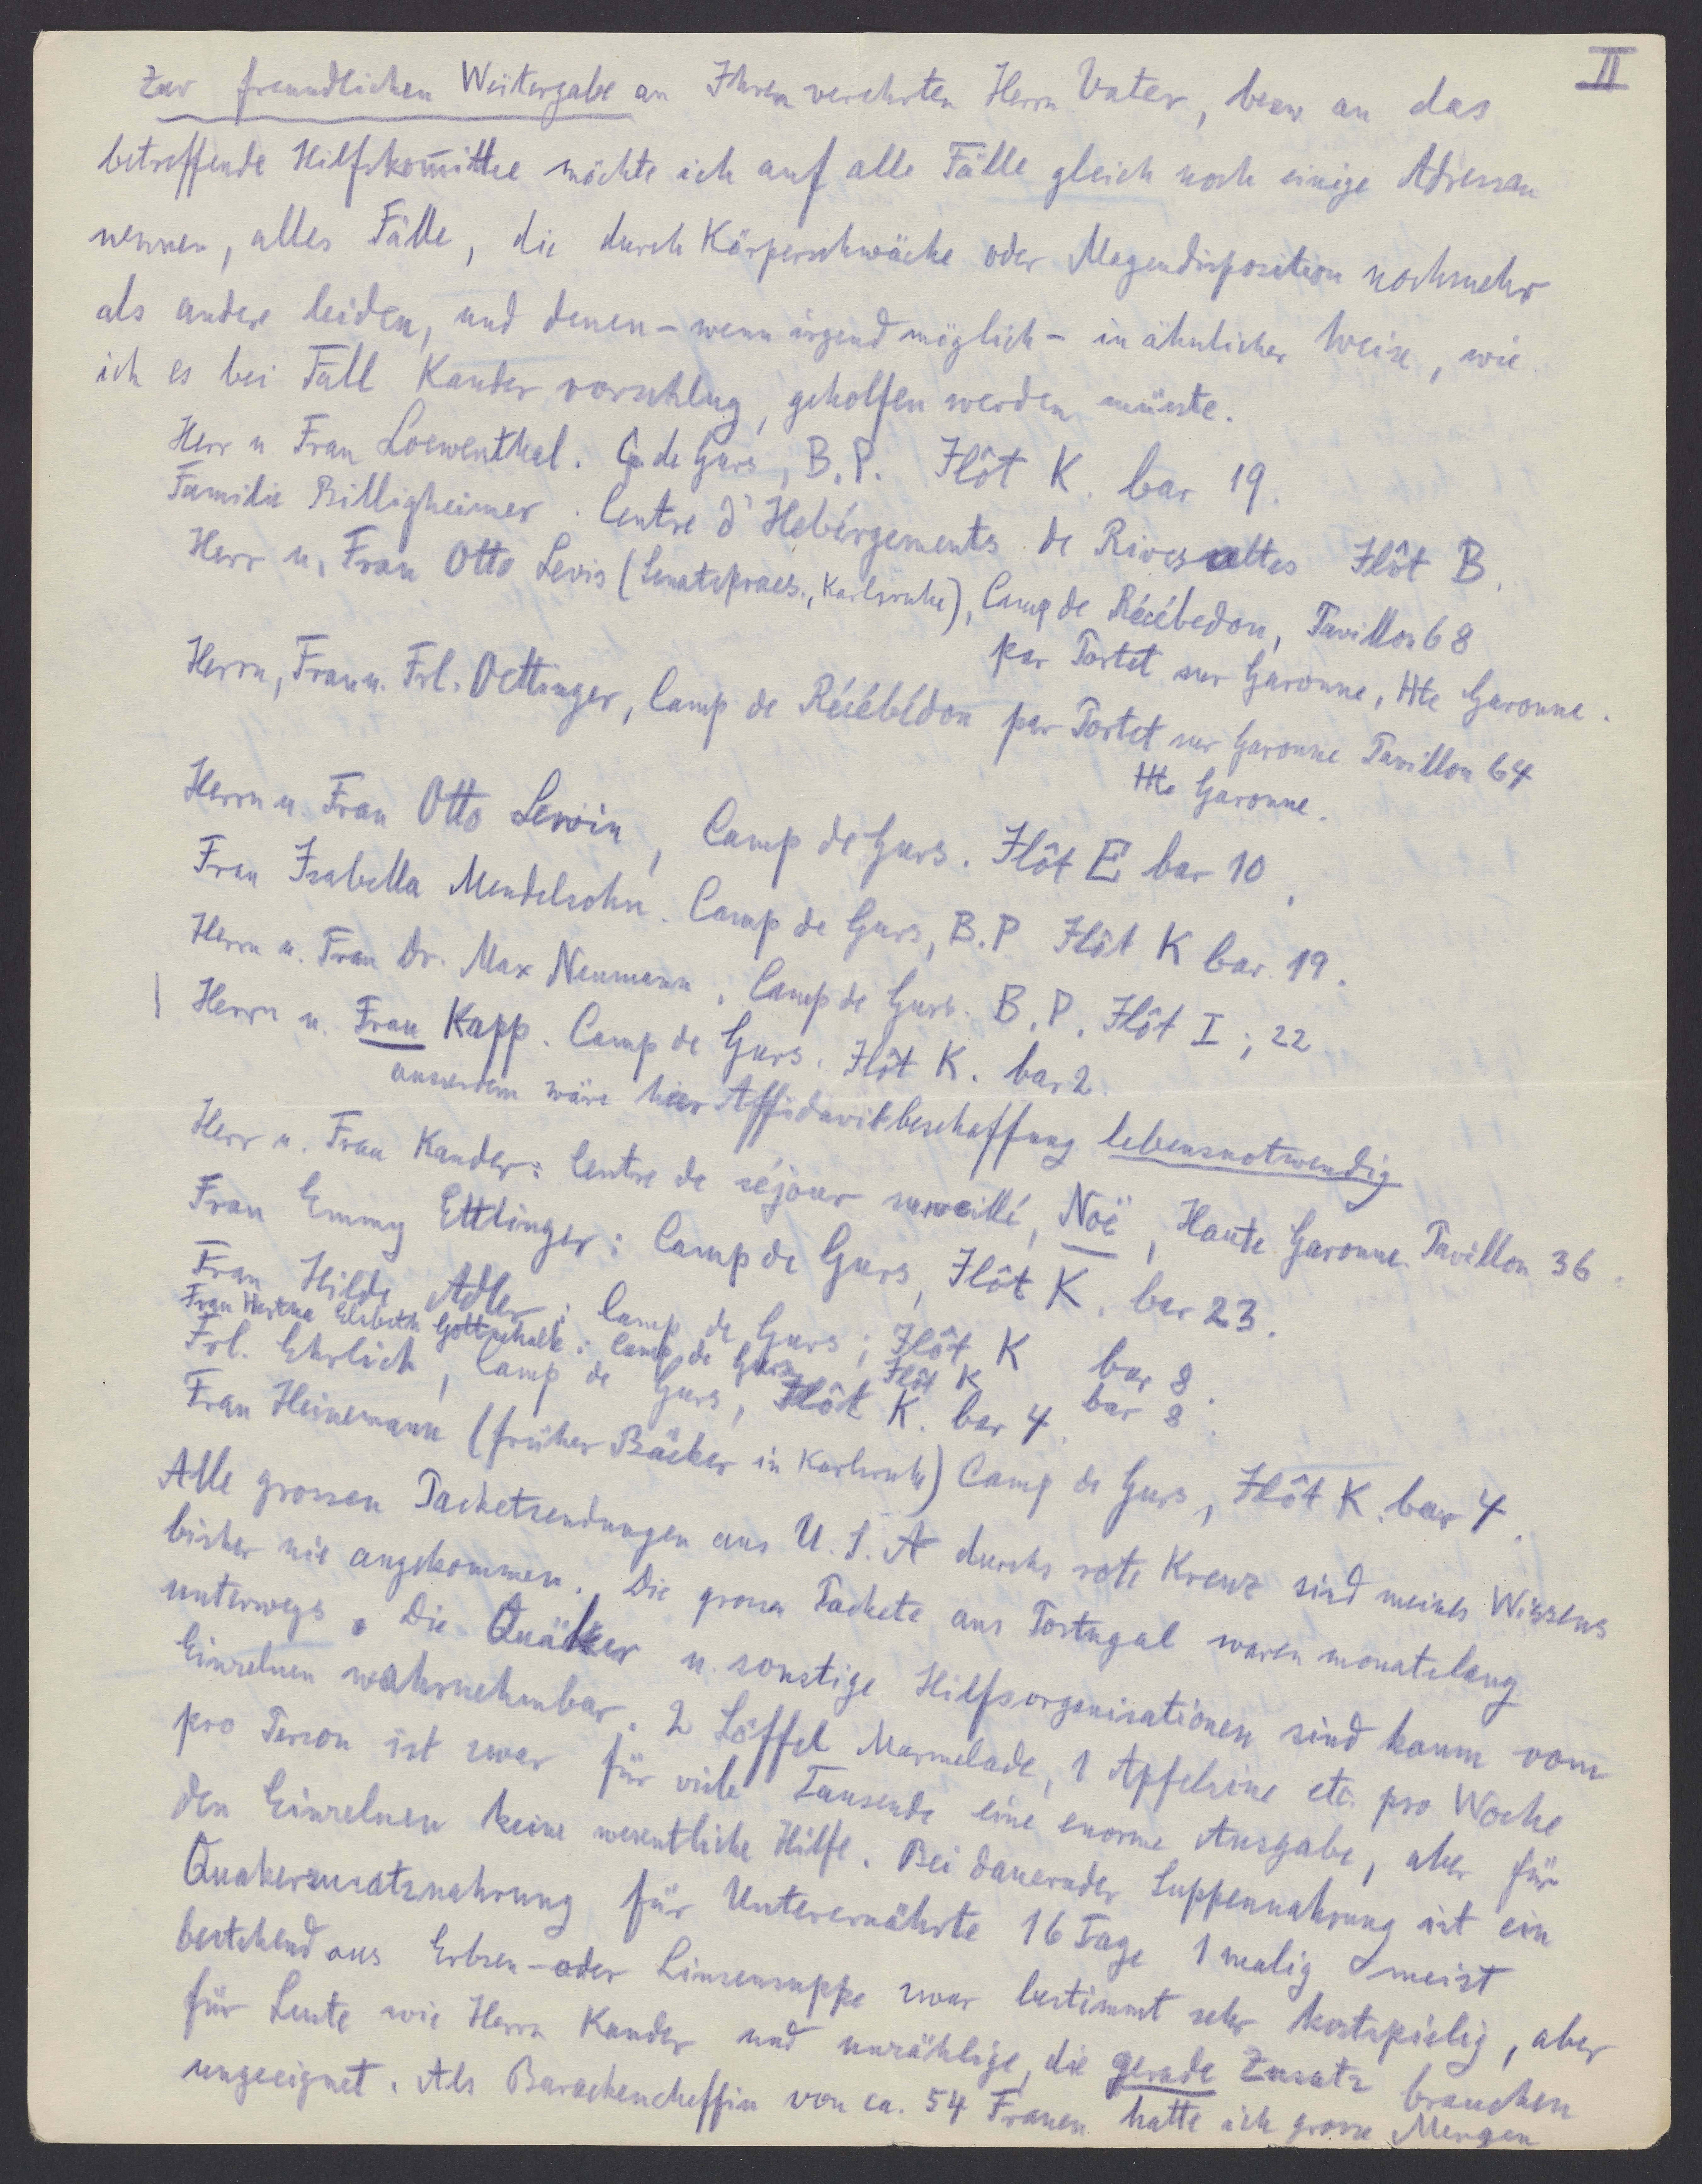 II
Zur freundlichen Weitergabe an Ihren verehrten Herrn Vater, bezw an das
betreffende Hilfskomittee möchte ich auf alle Fälle gleich noch einige Adressen
nennen, alles Fälle, die durch Körperschwäche oder Magendisposition nochmehr
als andere leiden, und denen – wenn irgend möglich – in ähnlicher Weise, wie
ich es bei Fall Kander vorschlug, geholfen werden müsste.
Herr u Frau Loewenthal. C. de Gurs, B.P. Ilôt K. bar 19.
Familie Billigheimer. Centre d'Hebérgements de Rivesaltes Ilôt B.
Herr u. Frau Otto Levis (Senatspraes., Karlsruhe), Camp de Récébedon, Pavillon 68
par Portet sur Garonne, Hte Garonne.
Herrn, Frau u. Frl. Oettinger, Camp de Récébédon par Portet sur Garonne Pavillon 64
Hte Garonne.
Herrn u. Frau Otto Lewin, Camp de Gurs. Ilôt E bar 10.
Frau Isabella Mendelsohn. Camp de Gurs, B.P Ilôt K bar. 19.
Herrn u. Frau Dr. Max Neumann. Camp de Gurs. B.P. Ilôt I; 22
Herrn u. Frau Kapp. Camp de Gurs. Ilôt K. bar 2.
ausserdem wäre hier Affidavitbeschaffung lebensnotwendig
Herr u. Frau Kander: Centre de séjour surveillé, Noë, Haute Garonne. Pavillon 36.
Frau Emmy Ettlinger: Camp de Gurs, Ilôt K. bar 23.
Frau Hilde Adler: Camp de Gurs; Ilôt K bar 8.
Frau Elsbeth Gottschalk: Camp de Gurs Ilôt K bar 8.
Frl. Ehrlich, Camp de Gurs, Ilôt K. bar 4.
Frau Heinemann (früher Bäcker in Karlsruhe) Camp de Gurs, Ilôt K. bar 4.
Alle grossen Packetsendungen aus U.S.A durchs rote Kreuz sind meines Wissens
bisher nie angekommen. Die grossen Packete aus Portugal waren monatelang
unterwegs. Die Quäker u. sonstige Hilfsorganisationen sind kaum vom
Einzelnen wahrnehmbar. 2 Löffel Marmelade, 1 Apfelsine etc. pro Woche
pro Person ist zwar für viele Tausende eine enorme Ausgabe, aber für
den Einzelnen keine wesentliche Hilfe. Bei dauernder Suppennahrung ist ein
Quakerzusatznahrung für Unterernährte 16 Tage 1 malig meist
bestehend aus Erbsen- oder Linsensuppe zwar bestimmt sehr kostspielig, aber
für Leute wie Herrn Kander und unzählige, die gerade Zusatz brauchen
ungeeignet. Als Barackencheffin von ca. 54 Frauen hatte ich grosse Mengen